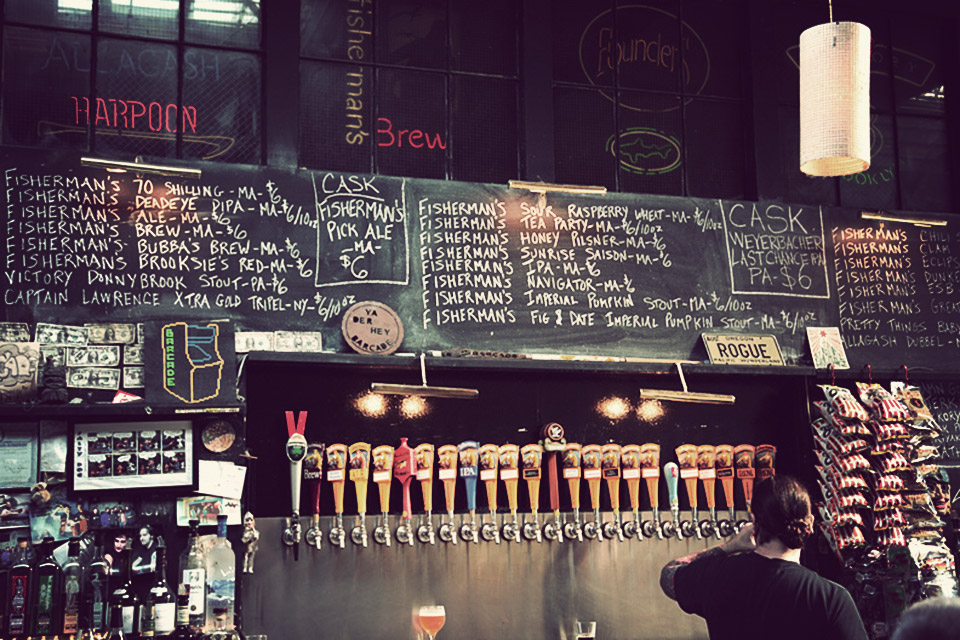 ALLAGASH
HARPOON
fisherman's
Brew
Founders
FISHERMAN'S 70 SHILLING-MA-$6
FISHERMAN'S DEADEYE DIPA-MA-$6/10oz
FISHERMAN'S ALE-MA-$6
FISHERMAN'S BREW-MA-$6
FISHERMAN'S BUBBA'S BREW-MA-$6
FISHERMAN'S BROOKSIE'S RED-MA-$6
VICTORY DONNYBROOK STOUT-PA-$6
CAPTAIN LAWRENCE XTRA GOLD TRIPEL-NY-$6/10oz
CASK
FISHERMAN'S
PICK ALE
-MA-
$6
FISHERMAN'S SOUR RASPBERRY WHEAT-MA-$6/10oz
FISHERMAN'S TEA PARTY-MA-$6/10oz
FISHERMAN'S HONEY PILSNER-MA-$6
FISHERMAN'S SUNRISE SAISON-MA-$6
FISHERMAN'S IPA-MA-$6
FISHERMAN'S NAVIGATOR-MA-$6
FISHERMAN'S IMPERIAL PUMPKIN STOUT-MA-$6/10oz
FISHERMAN'S FIG & DATE IMPERIAL PUMPKIN STOUT-MA-$6/10oz
CASK
WEYERBACHER
LAST CHANCE IPA
PA-$6
FISHERMAN'S
FISHERMAN'S
FISHERMAN'S
FISHERMAN'S
FISHERMAN'S
FISHERMAN'S
PRETTY THINGS BABY
ALLAGASH DUBBEL
YA
DER HEY
BARCADE
BARCADE
ROGUE
IPA